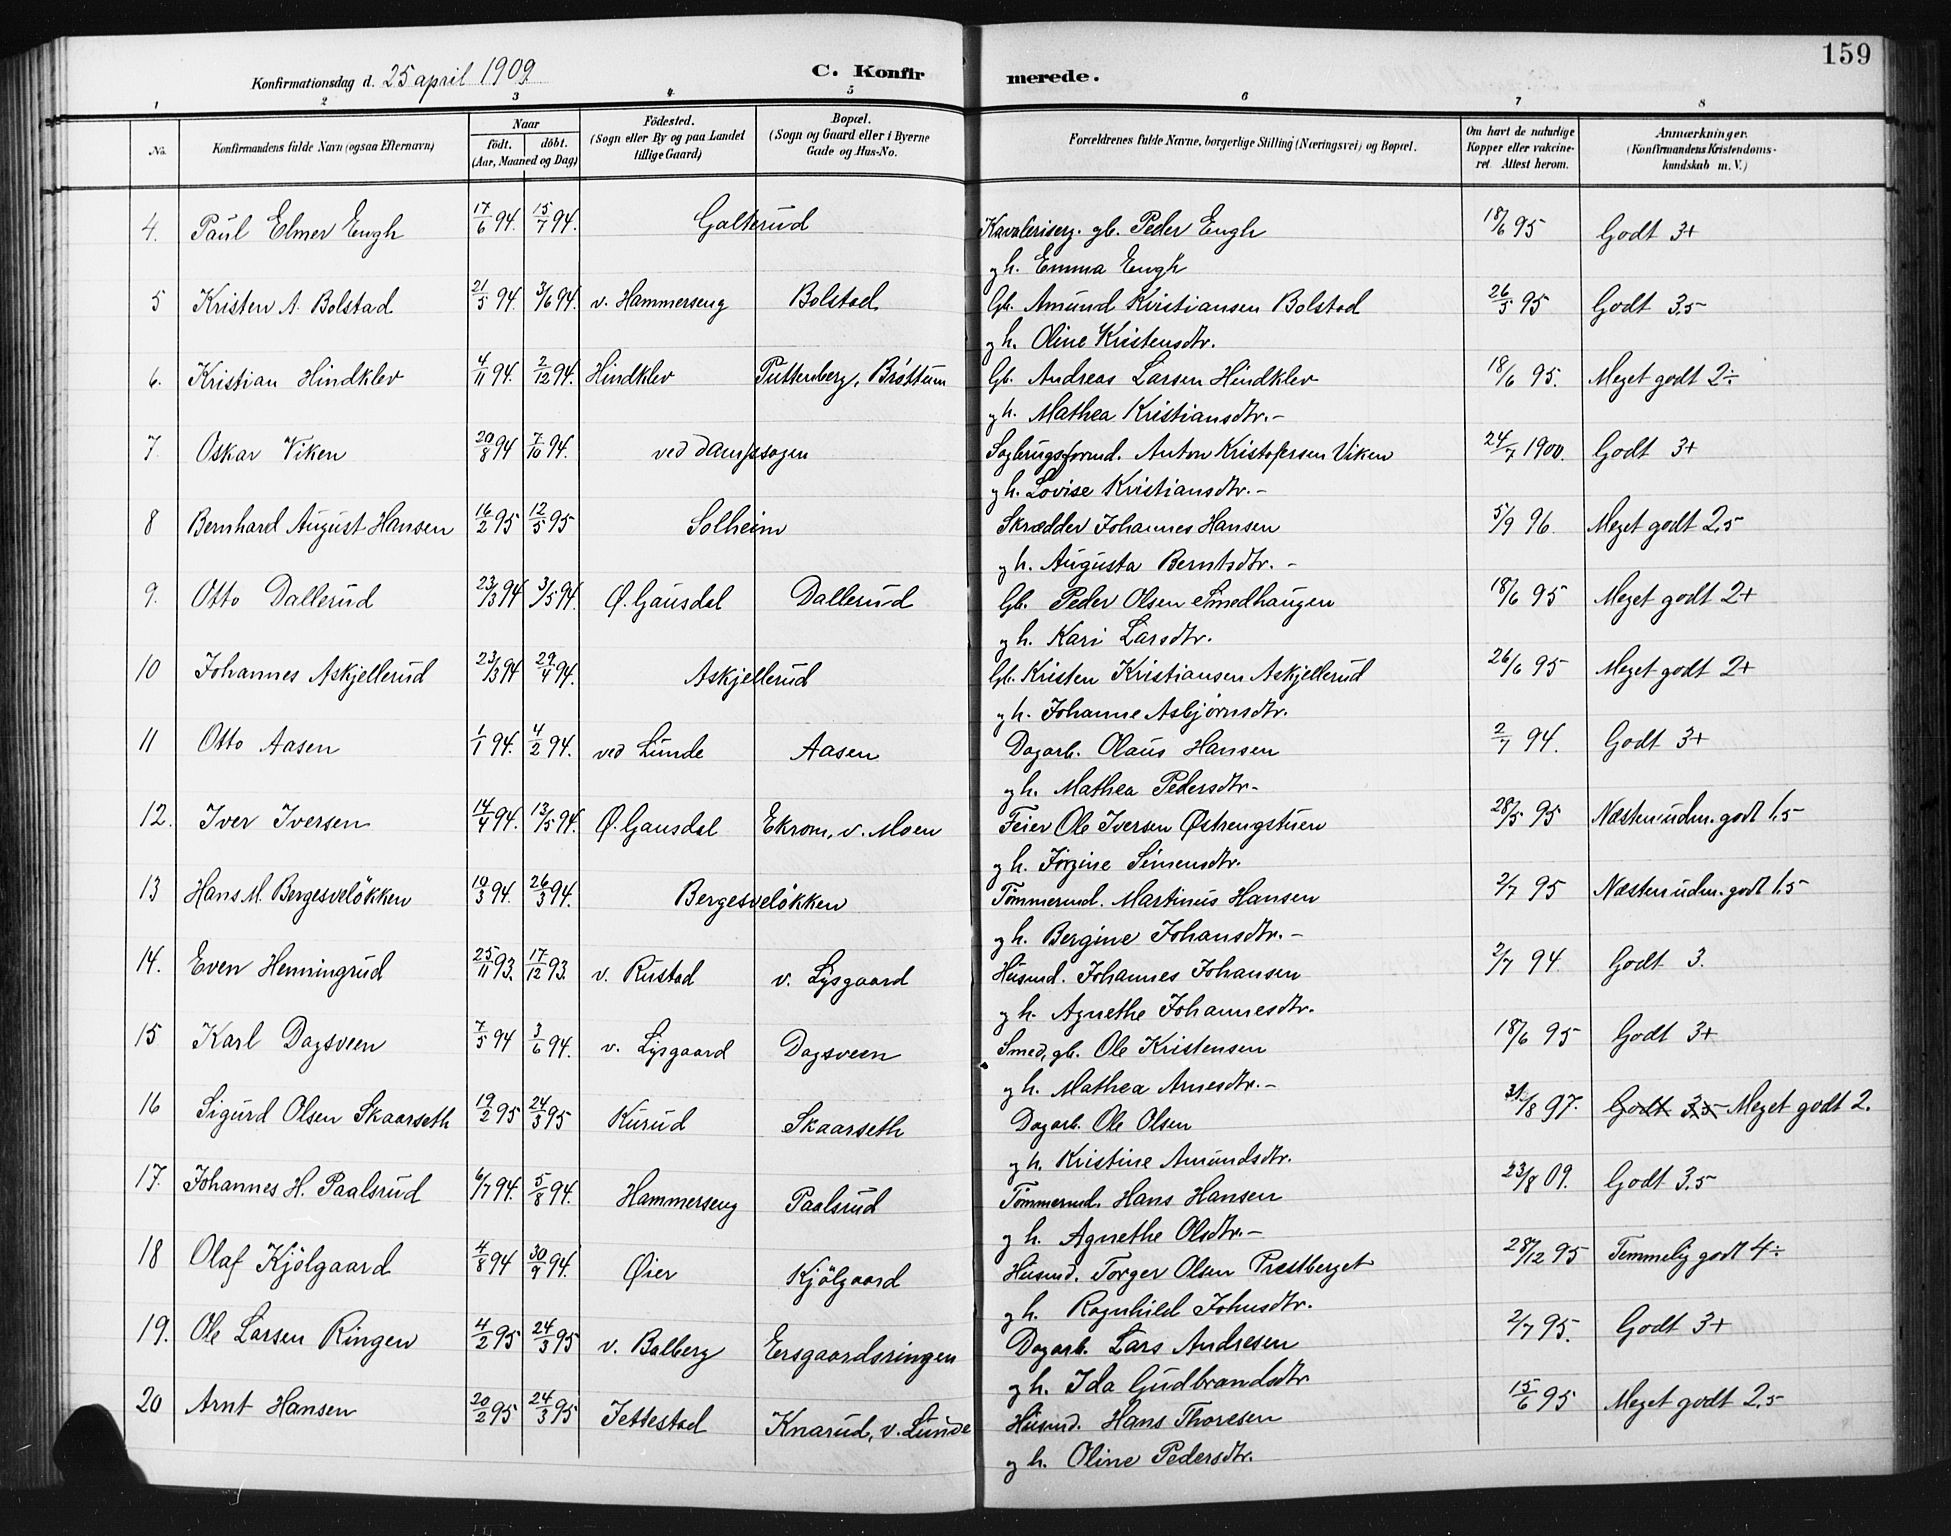 159
Konfirmationsdag d. 25 april 1909
C. Konfirmerede.
1 2 3 4 5 6 7 8
No. Konfirmandens fulde Navn (ogsaa Efternavn) Naar født. døbt. (Aar, Maaned og Dag) Fødested. (Sogn eller By og paa Landet tillige Gaard) Bopæl. (Sogn og Gaard eller i Byerne Gade og Hus-No. Forældrenes fulde Navne, borgerlige Stilling (Næringsvei) og Bopæl. Om havt de naturlige Kopper eller vakcineret. Attest herom. Anmærkninger. (Konfirmandens Kristendomskundskab m. V.)
4. Paul Elmer Engh 17/6 94. 15/7 94. Galterud Kavaleriserg. gb. Peder Engh 18/6 95 Godt 3+
og h. Emma Engh
5 Kristen A. Bolstad 21/5 94. 3/6 94. v. Hammerseng Bolstad Gb. Amund Kristiansen Bolstad 26/5 95 Godt 3.5
og h. Oline Kristensdtr.
6. Kristian Hindklev 4/11 94. 2/12 94. Hindklev Puttenberg, Brøttum Gb. Andreas Larsen Hindklev 18/6 95. Meget godt 2÷
og h. Mathea Kristiansdtr.-
7. Oskar Viken 20/8 94 7/10 94. ved Dampsagen Sagbrugsformd. Anton Kristofersen Viken 24/7 1900. Godt 3+
og h. Lovise Kristiansdtr.-
8 Bernhard August Hansen 16/2 95 12/5 95 Solheim Skrædder Johannes Hansen 5/9 96. Meget godt 2.5
og h. Augusta Berntsdtr. -
9. Otto Dallerud 23/3 94 3/5 94. Ø. Gausdal Dallerud Gb. Peder Olsen Smedhaugen 18/6 95 Meget godt 2+
og h. Kari Larsdtr.
10 Johannes Askjellerud 23/3 94 29/4 94. Askjellerud Gb. Kristen Kristiansen Askjellerud 26/6 95 Meget godt 2+
og h. Johanne Asbjørnsdtr.
11 Otto Aasen 1/1 94. 4/2 94. ved Lunde Aasen Dagarb. Olaus Hansen 2/7 94. Godt 3+
og h. Mathea Pedersdtr-
12. Iver Iversen 14/4 94. 13/5 94. Ø. Gausdal Ekrom, v. Moen Feier Ole Iversen Østrengstuen 28/5 95 Næsten udm. godt 1.5
og h. Jørgine Simensdtr.
13 Hans M. Bergesveløkken 10/3 94. 26/3 94. Bergesveløkken Tømmermd. Martinus Hansen 2/7 95 Næsten udm. godt 1.5
og h. Bergine Johansdtr.-
14. Even Henningrud 25/11 93. 17/12 93. v. Rustad v. Lysgaard Husmd. Johannes Johansen 2/7 94. Godt 3.
og h. Agnethe Johannesdtr.
15 Karl Dagsveen 7/5 94 3/6 94. v. Lysgaard Dagsveen Smed, gb. Ole Kristensen 18/6 95 Godt 3+
og h. Mathea Arnesdtr.-
16 Sigurd Olsen Skaarseth 19/2 95 24/3 95 Kurud Skaarseth Dagarb. Ole Olsen 31/8 97. Godt 3.5 Meget godt 2.
og h. Kristine Amundsdtr.
17. Johannes H. Paalsrud 6/7 94. 5/8 94. Hammerseng Paalsrud Tømmermd. Hans Hansen 23/8 09. Godt 3.5
og h. Agnethe Olsdtr.-
18 Olaf Kjølgaard 4/8 94 30/9 94. Øier Kjølgaard Husmd. Torger Olsen Prestberget 28/12 95 Temmelig godt 4÷
og h. Ragnhild Johnsdtr.
19. Ole Larsen Ringen 4/2 95 24/3 95 v. Balberg Ersgaardsringen Dagarb. Lars Andresen 2/7 95. Godt 3+
og h. Ida Gudbrandsdtr
20 Arnt Hansen 20/2 95 24/3 95 Jettestad Knarud, v. Lunde Husmd. Hans Thoresen 15/6 95 Meget godt 2.5
og h. Oline Pedersdtr.